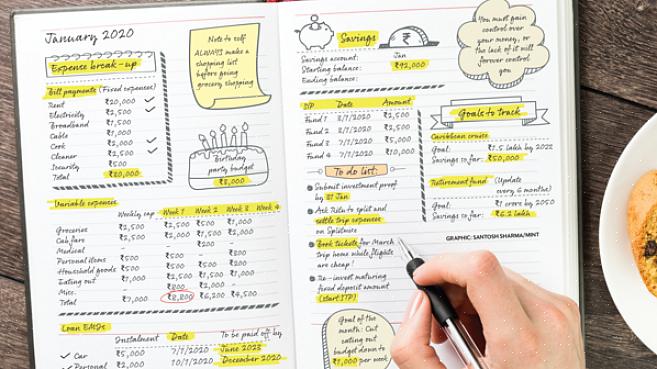 January 2020
Expense break-up
Bill payments (Fixed expenses)
Rent ₹20,000
Electricity ₹2,500
Broadband ₹1,500
Cable ₹1,000
Cook ₹2,000
Cleaner ₹2,500
Security ₹500
Total ₹30,000
Note to self
ALWAYS make a
shopping list
before going
grocery shopping
Birthday
party budget
₹8,000
Variable expenses
Weekly cap Week 1 Week 2 Week 3 Week 4
Groceries ₹2,500 ₹2,500 ₹2,500
Cab fare ₹2,000 ₹2,000 ₹1,500 ₹2,000
Medical - - ₹200 -
Personal items ₹500 ₹500 - -
Household goods ₹500 ₹500
Eating out ₹1,000 ₹2,500
Misc.
Total ₹7,000 ₹8,800 ₹6,200 ₹4,500
Loan EMIs
Instalment Date To be paid off by
Car ₹5,000 7/1/2020 June 2023
Personal ₹2,000 10/1/2020 December 2020
Savings
Jan
Savings account:
Starting balance: ₹92,000
Ending balance:
You must gain
control over
your money, or
the lack of it will
forever control
you
SIP Date Amount
Fund 1 3/1/2020 ₹2,500
Fund 2 ₹2,500
Fund 3 7/1/2020 ₹5,000
Fund 4 7/1/2020 ₹10,000
Goals to track
Caribbean cruise
Goal: ₹1.5 lakh by 2022
Savings so far: ₹50,000
Retirement fund (Update
every 6 months)
Goal: ₹1 crore by 2050
Savings so far: ₹6.2 lakh
GRAPHIC: SANTOSH SHARMA/MINT
To do list:
Submit investment proof
by 31 Jan
Ask Ritu to split and
settle trip expenses
on Splitwise
Book tickets for March
trip home while flights
are cheap!
Re-invest maturing
fixed deposit amount
(start STP)
Goal of the
month: Cut
eating out
budget down to
₹1,000 per week